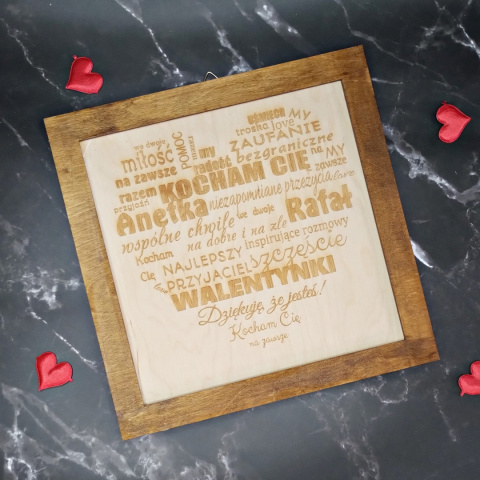 we dwoje
miłość
POMOC
my
uśmiech
troska love MY
ZAUFANIE
na zawsze
radość bezgraniczne
razem KOCHAM CIĘ na MY
zawsze
przyjaźń
Anetka niezapomniane przeżycia love
wspólne chwile we dwoje Rafał
Kocham na dobre i na złe
Cię NAJLEPSZY inspirujące rozmowy
PRZYJACIEL szczęście
WALENTYNKI
Dziękuję, że jesteś!
Kocham Cię
na zawsze